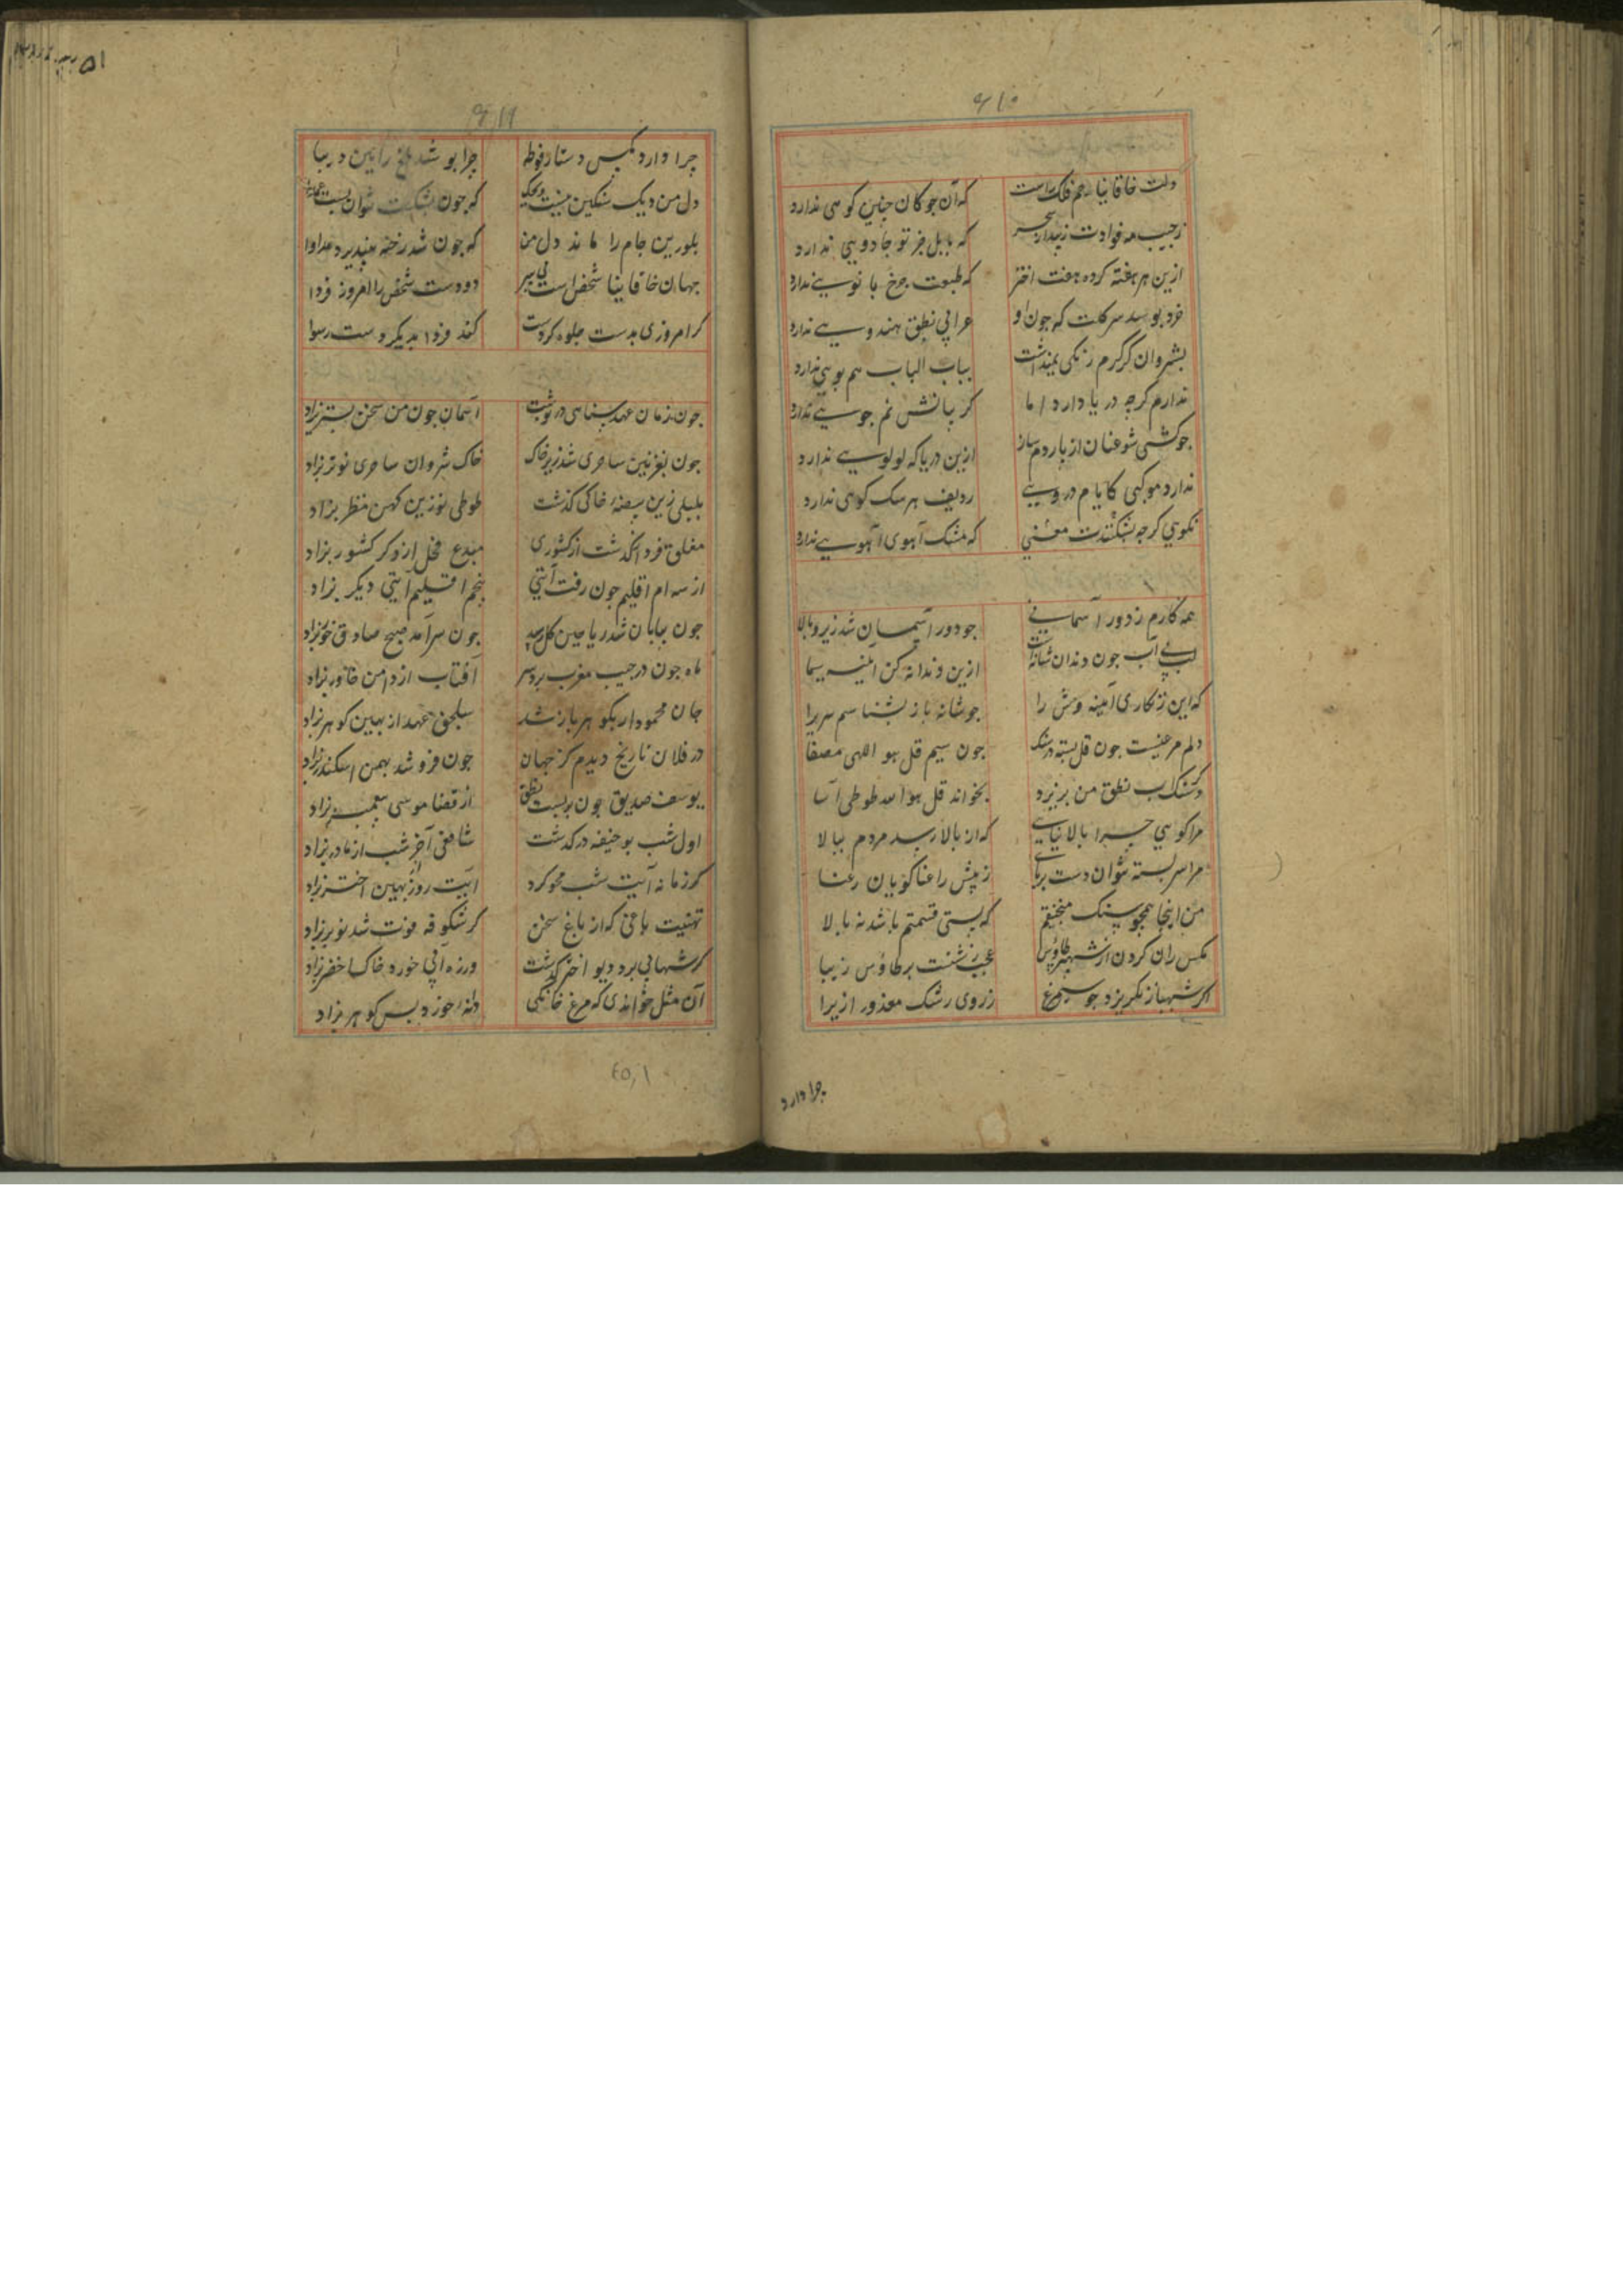 ۶۱۰
دلت خاقانیا زخم فلک راست
که آن چوکان چنین کوهی ندارد
زجیب مه فوادت زیبدار سحر
که بابل جز تو جادویی ندارد
ازین هر هفته کرده هفت اختر
که طبعت چرخ بانویی ندارد
خرد بوسد سر کلکت که جون او
عرابی نطق هندویی ندارد
بشروان کر کرم رنکی نمیداشت
بباب الباب هم بویی ندارد
ندارم کرچه دریا دارد اما
کریبانش نم جویی ندارد
جو کشتی شو عنان از باردم ساز
ازین دریا که لولویی ندارد
ندارد موکبی کایام دروی
ردیف هر سک کوهی ندارد
نکویی کرجه بشکندت معنی
که مشک آهوی آهویی ندارد
همه کارم ز دور آسمانی
جو دور آسمان شد زیر و بالا
لب بی آب جون دندان شانه است
ازین دندانه کن آینه سیما
که این زنکاری آینه وش را
جو شانه باز بشناسم سر برا
دلم مرغیست جون قل بسته در سنک
جون سیم قل هو اللهی مصفا
کر سنک آب نطق من بریزد
بخواند قل هو الله طوطی آسا
مرا کویی جرا بالا نیایی
که از بالا رسد مردم ببالا
مرا سر بسته نتوان داشت بر پای
ز پیش راعنا کویان رعنا
من اینجا همجو سنک منجنیقم
که پستی قسمتم باشد نه بالا
مکس ران کردن از شهپر طاوس
عجب زشتست بر طاوس زیبا
اکر شهباز نکریزد جو سیمرغ
ز روی رشک معذور ازیرا
چرا دارد
۶۱۱
چرا دارد مکس دستار فوطه
چرا پوشد ملخ رانین دیبا
دل من دیک سنکین نیست ویحک
که جون بشکست نتوان بست عمدا
بلورین جام را ماند دل من
که جون شد رخنه نپذیرد مداوا
جهان خاقانیا شخصی است بی سر
دو دست شخص را امروز فردا
کر امروزی بدست جلوه کردت
کند فردا بدیکر دست رسوا
جون زمان عهد سنایی در نوشت
آسمان جون من سخن کستر بزاد
جون بغزنین ساحری شد زیر خاک
خاک شروان ساحری نوتر بزاد
بلبلی زین بیضهٔ خاکی کذشت
طوطی نو زین کهن منظر بزاد
مفلق فرد ار کذشت از کشوری
مبدع فحل از دکر کشور بزاد
از سه ام اقلیم جون رفت آیتی
پنجم اقلیم آیتی دیکر بزاد
جون بپایان شد ریاحین کل رسید
جون سرآمد صبح صادق خور بزاد
ماه جون در جیب مغرب برد سر
آفتاب از دامن خاور بزاد
جان محمود ار بکوهر باز شد
سلجق عهد از بهین کوهر بزاد
در فلان تاریخ دیدم کز جهان
جون فرو شد بهمن اسکندر بزاد
یوسف صدیق جون بربست نطق
از قضا موسی پیغمبر بزاد
اول شب بو حنیفه درکذشت
شافعی آخر شب از مادر بزاد
کر زمانه آیت شب محو کرد
آیت روز بهین اختر بزاد
تهنیت باغی که از باغ سخن
کر شکوفه فوت شد نوبر بزاد
کر شهابی برد دیو اختر کذشت
ور زه آبی خورد خاک اخضر بزاد
آن مثل خواندی که مرغ خانکی
دانه خورد پس کوهر بزاد